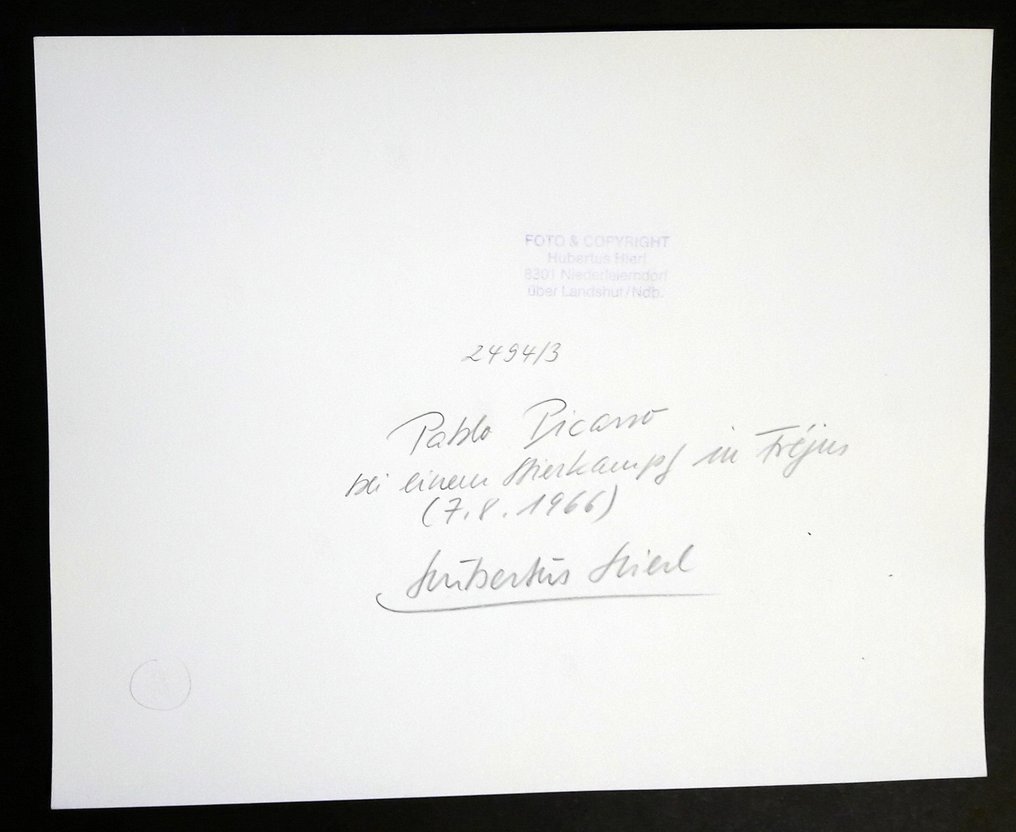 FOTO & COPYRIGHT
Hubertus Hierl
8301 Niederleierndorf
über Landshut/Ndb.
2494/3
Pablo Picasso
bei einem Stierkampf in Fréjus
(7.8.1966)
Hubertus Hierl